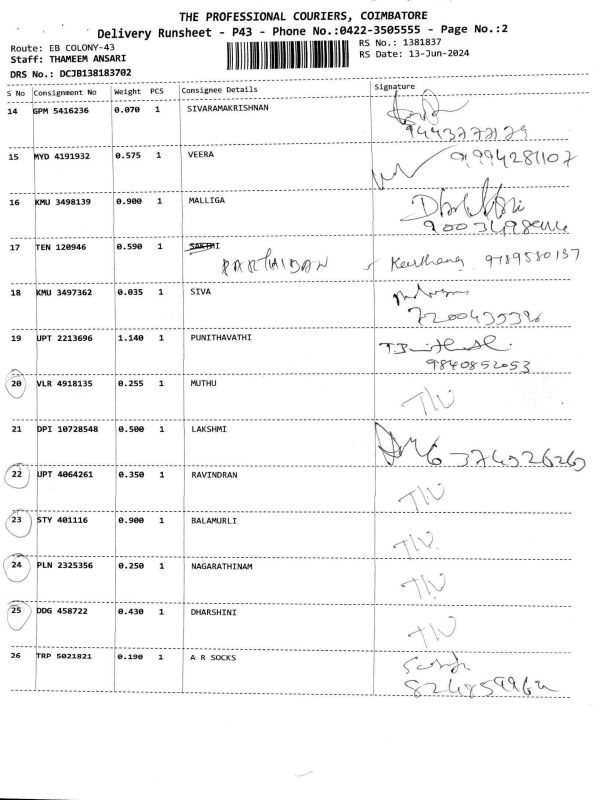 THE PROFESSIONAL COURIERS, COIMBATORE
Delivery Runsheet - P43 - Phone No.:0422-3505555 - Page No.:2
Route: EB COLONY-43
RS No.: 1381837
Staff: THAMEEM ANSARI
RS Date: 13-Jun-2024
DRS No.: DCJB138183702
S No Consignment No Weight PCS Consignee Details Signature
14 GPM 5416236 0.070 1 SIVARAMAKRISHNAN
15 MYD 4191932 0.575 1 VEERA
16 KMU 3498139 0.900 1 MALLIGA
17 TEN 120946 0.590 1 SAKTHI
PARTHIBAN 9789580137
18 KMU 3497362 0.035 1 SIVA
19 UPT 2213696 1.140 1 PUNITHAVATHI
9840852053
20 VLR 4918135 0.255 1 MUTHU
21 DPI 10728548 0.500 1 LAKSHMI
22 UPT 4064261 0.350 1 RAVINDRAN
23 STY 401116 0.900 1 BALAMURLI
24 PLN 2325356 0.250 1 NAGARATHINAM
25 DDG 458722 0.430 1 DHARSHINI
26 TRP 5021821 0.190 1 A R SOCKS